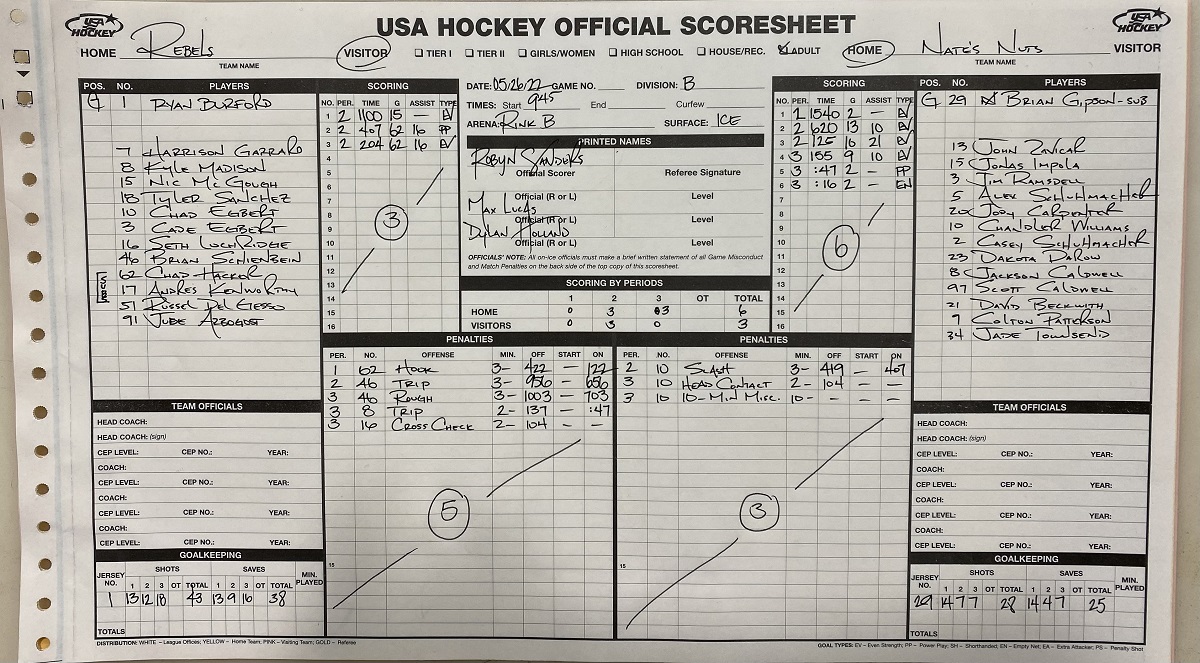 USA HOCKEY OFFICIAL SCORESHEET
USA HOCKEY
USA HOCKEY
HOME Rebels
TEAM NAME
VISITOR TIER I TIER II GIRLS/WOMEN HIGH SCHOOL HOUSE/REC. ADULT HOME
Nate's Nuts VISITOR
TEAM NAME
POS. NO. PLAYERS
G 1 Ryan Burford
7 Harrison Garrard
8 Kyle Madison
15 Nic McGough
18 Tyler Sanchez
10 Chad Egbert
3 Cade Egbert
16 Seth Lochridge
46 Brian Schienbein
62 Chad Hacker
SUBS 17 Andres Kenworthy
51 Russel Del Gesso
91 Jude Arbogust
SCORING
NO. PER. TIME G ASSIST TYPE
1 2 1100 15 — EV
2 2 407 62 16 PP
3 2 204 62 16 EV
4
5
6
7
8
9
10
11
12
13
14
15
16
3
DATE: 05/26/22 GAME NO. DIVISION: B
TIMES: Start 945 End Curfew
ARENA: Rink B SURFACE: ICE
PRINTED NAMES
Robyn Sanders
Official Scorer Referee Signature
Official (R or L) Level
Max Lucas
Official (R or L) Level
Dylan Holland
Official (R or L) Level
OFFICIALS' NOTE: All on-ice officials must make a brief written statement of all Game Misconduct
and Match Penalties on the back side of the top copy of this scoresheet.
SCORING BY PERIODS
1 2 3 OT TOTAL
HOME 0 3 3 6
VISITORS 0 3 0 3
SCORING
NO. PER. TIME G ASSIST TYPE
1 2 1540 2 — EV
2 2 620 13 10 EV
3 2 125 10 21 EV
4 3 155 9 10 EV
5 3 :47 2 — PP
6 3 :16 2 — EN
7
8
9
10
11
12
13
14
15
16
6
POS. NO. PLAYERS
G 29 Brian Gipson-sub
13 John Zavicar
15 Jonas Impola
3 Jim Ramsdell
5 Alex Schuhmacher
20 Jody Carpenter
10 Chandler Williams
2 Casey Schuhmacher
23 Dakota Darow
8 Jackson Caldwell
97 Scott Caldwell
21 David Beckwith
9 Colton Patterson
34 Jade Townsend
PENALTIES
PER. NO. OFFENSE MIN. OFF START ON
1 62 Hook 3- 422 — 122
2 46 Trip 3- 956 — 656
3 46 Rough 3- 1003 — 703
3 8 Trip 2- 137 — :47
3 16 Cross Check 2- 104 — —
5
15
PENALTIES
PER. NO. OFFENSE MIN. OFF START ON
2 10 Slash 3- 419 — 407
3 10 Head Contact 2- 104 — —
3 10 10-Min Misc. 10- — — —
3
15
TEAM OFFICIALS
HEAD COACH:
HEAD COACH: (sign)
CEP LEVEL: CEP NO.: YEAR:
COACH:
CEP LEVEL: CEP NO.: YEAR:
COACH:
CEP LEVEL: CEP NO.: YEAR:
COACH:
CEP LEVEL: CEP NO.: YEAR:
GOALKEEPING
JERSEY NO. SHOTS SAVES MIN. PLAYED
1 2 3 OT TOTAL 1 2 3 OT TOTAL
1 13 12 18 43 13 9 16 38
TOTALS
TEAM OFFICIALS
HEAD COACH:
HEAD COACH: (sign)
CEP LEVEL: CEP NO.: YEAR:
COACH:
CEP LEVEL: CEP NO.: YEAR:
COACH:
CEP LEVEL: CEP NO.: YEAR:
COACH:
CEP LEVEL: CEP NO.: YEAR:
GOALKEEPING
JERSEY NO. SHOTS SAVES MIN. PLAYED
1 2 3 OT TOTAL 1 2 3 OT TOTAL
29 14 7 7 28 14 4 7 25
TOTALS
DISTRIBUTION: WHITE – League Offices; YELLOW – Home Team; PINK – Visiting Team; GOLD – Referee
GOAL TYPES: EV – Even Strength; PP – Power Play; SH – Shorthanded; EN – Empty Net; EA – Extra Attacker; PS – Penalty Shot